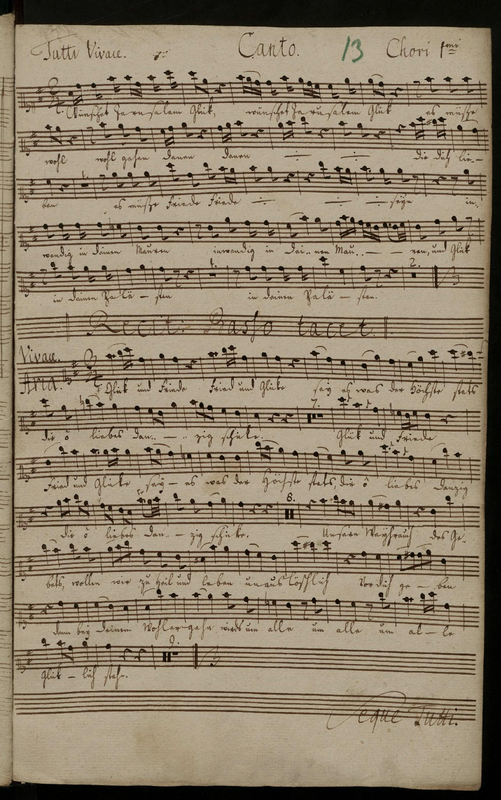 Tutti Vivace. Canto. 13 Chori 1mi
Wünschet Jerusalem Glük, wünschet Jerusalem Glük es müße
wohl wohl gehen denen denen die dich lie-
ben es müße Friede Friede seyn in-
wendig in deinen Mauren inwendig in dei- nen Mau- - - ren, und Glük
in deinen Palä- sten in deinen Palä- sten.
Recit: Basso tacet.
Vivace.
Aria.
Glük und Friede Fried und Glüke sey es was der Höchste stets
dir ô liebes Dan- - - zig schüke. Glük und Friede
Fried und Glüke sey- es was der Höchste stets dir ô liebes Danzig
dir ô liebes Dan- zig schüke. Unsern Weyhrauch des Ge-
bets, wollen wir zu Heil und Leben unauslöschlich vor dich ge- ben
denn bey deinem Wohlergehn wirds um alle um alle um al- le
glük- lich stehn.
Seque Tutti.